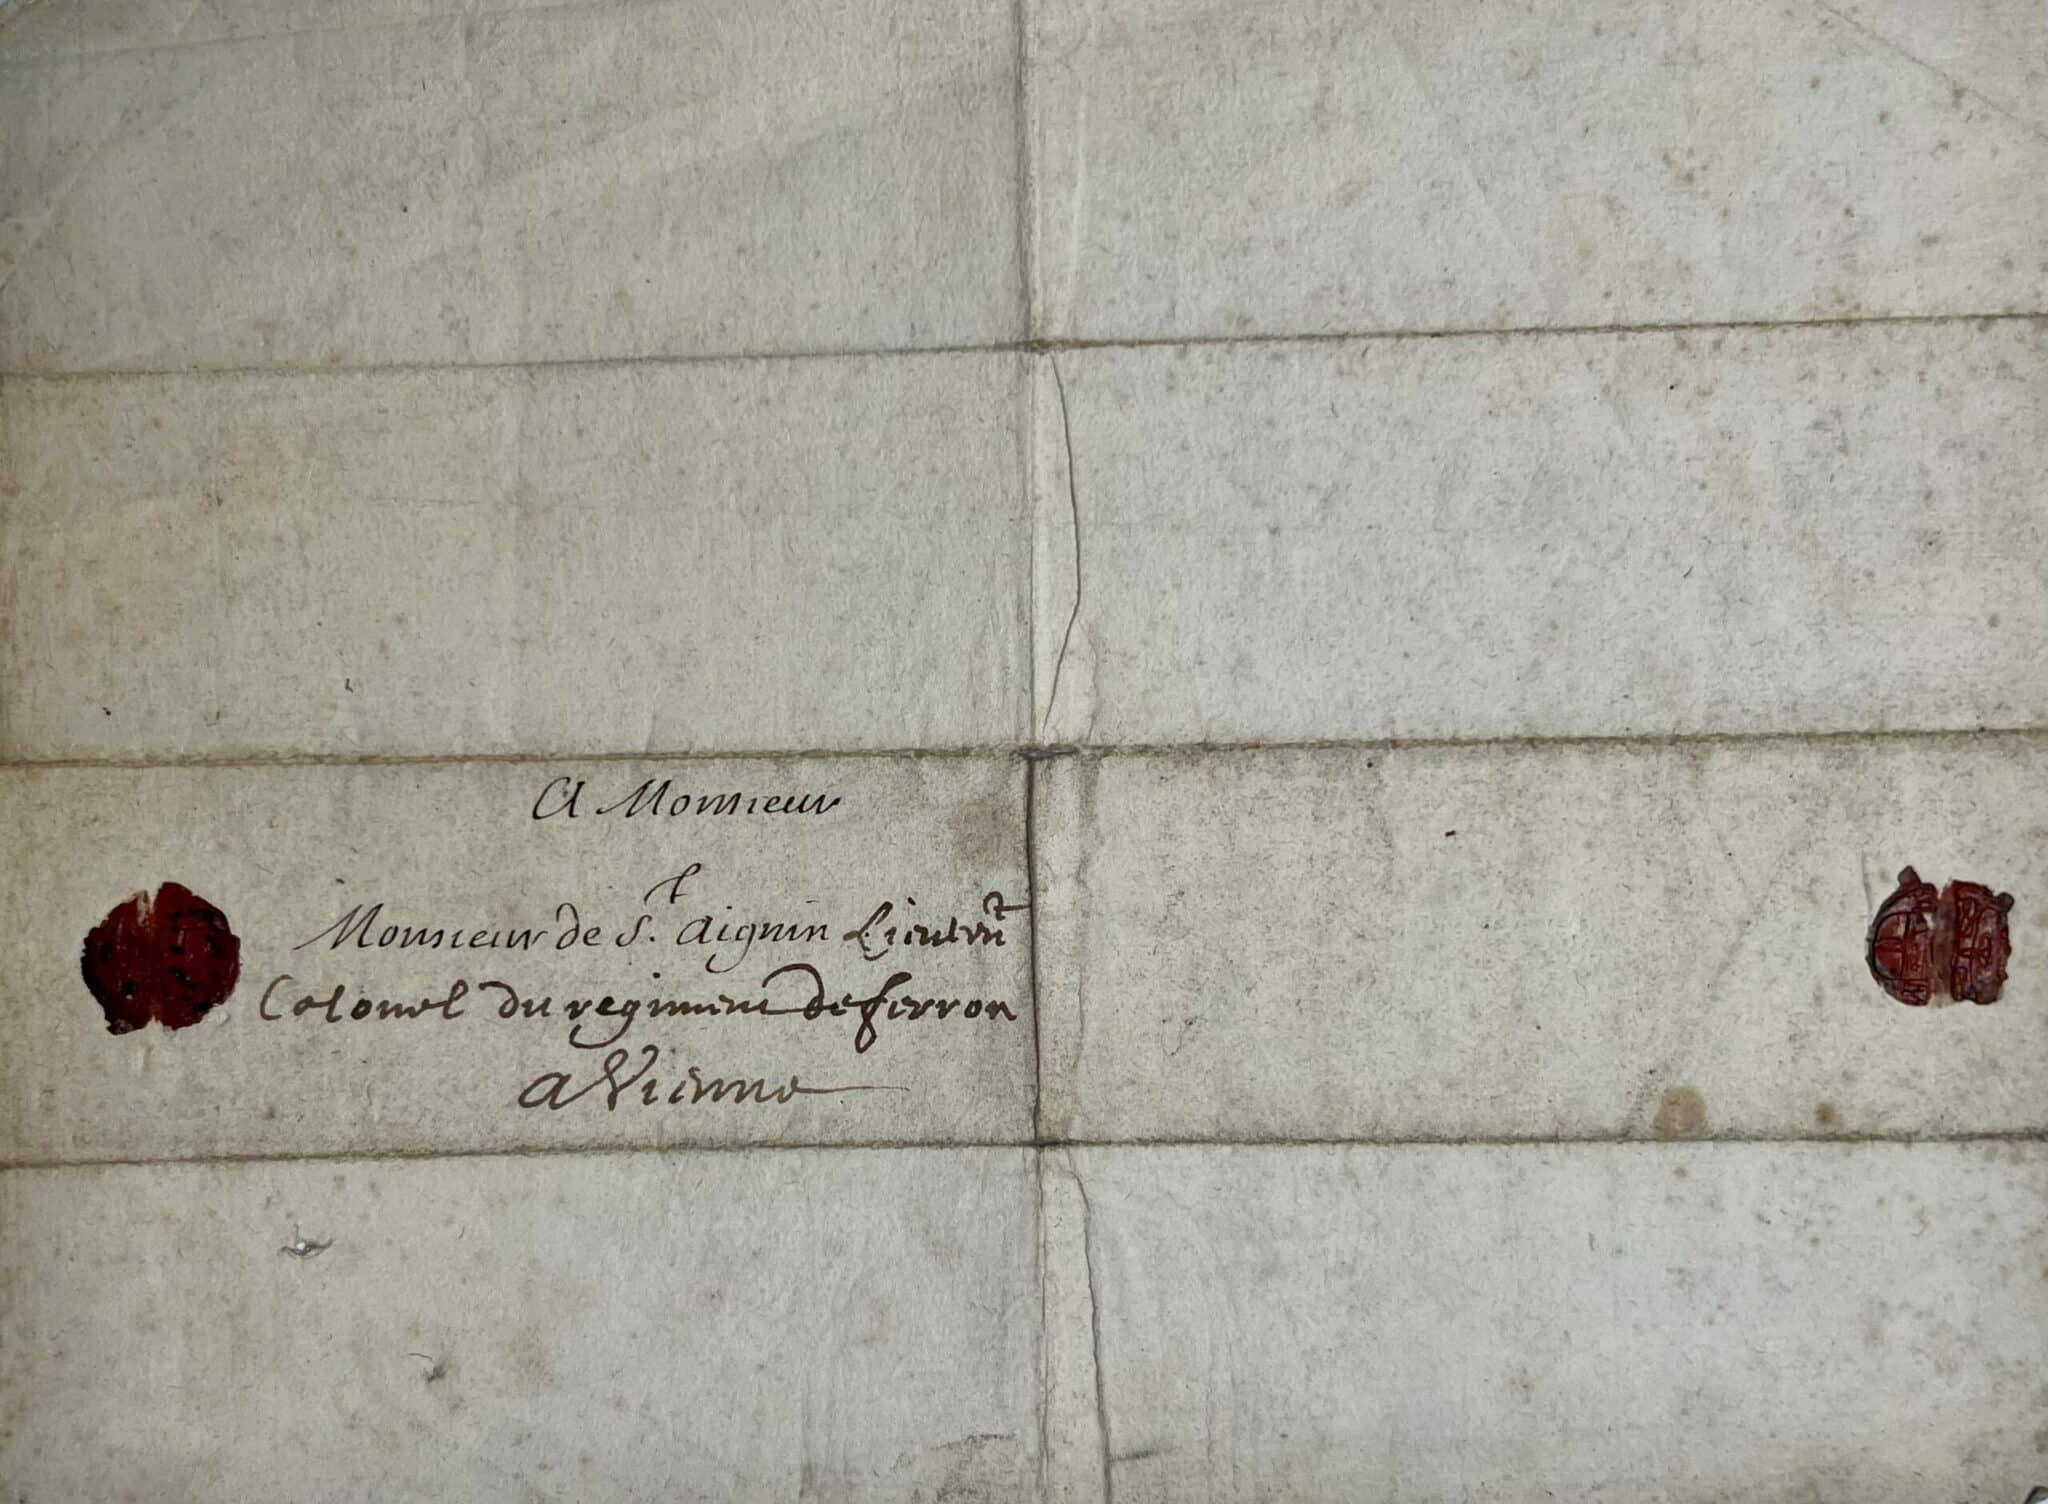 A Monsieur
Monsieur de St. Aignin Lieutent
Colonel du regiment de ferron
a Vienne